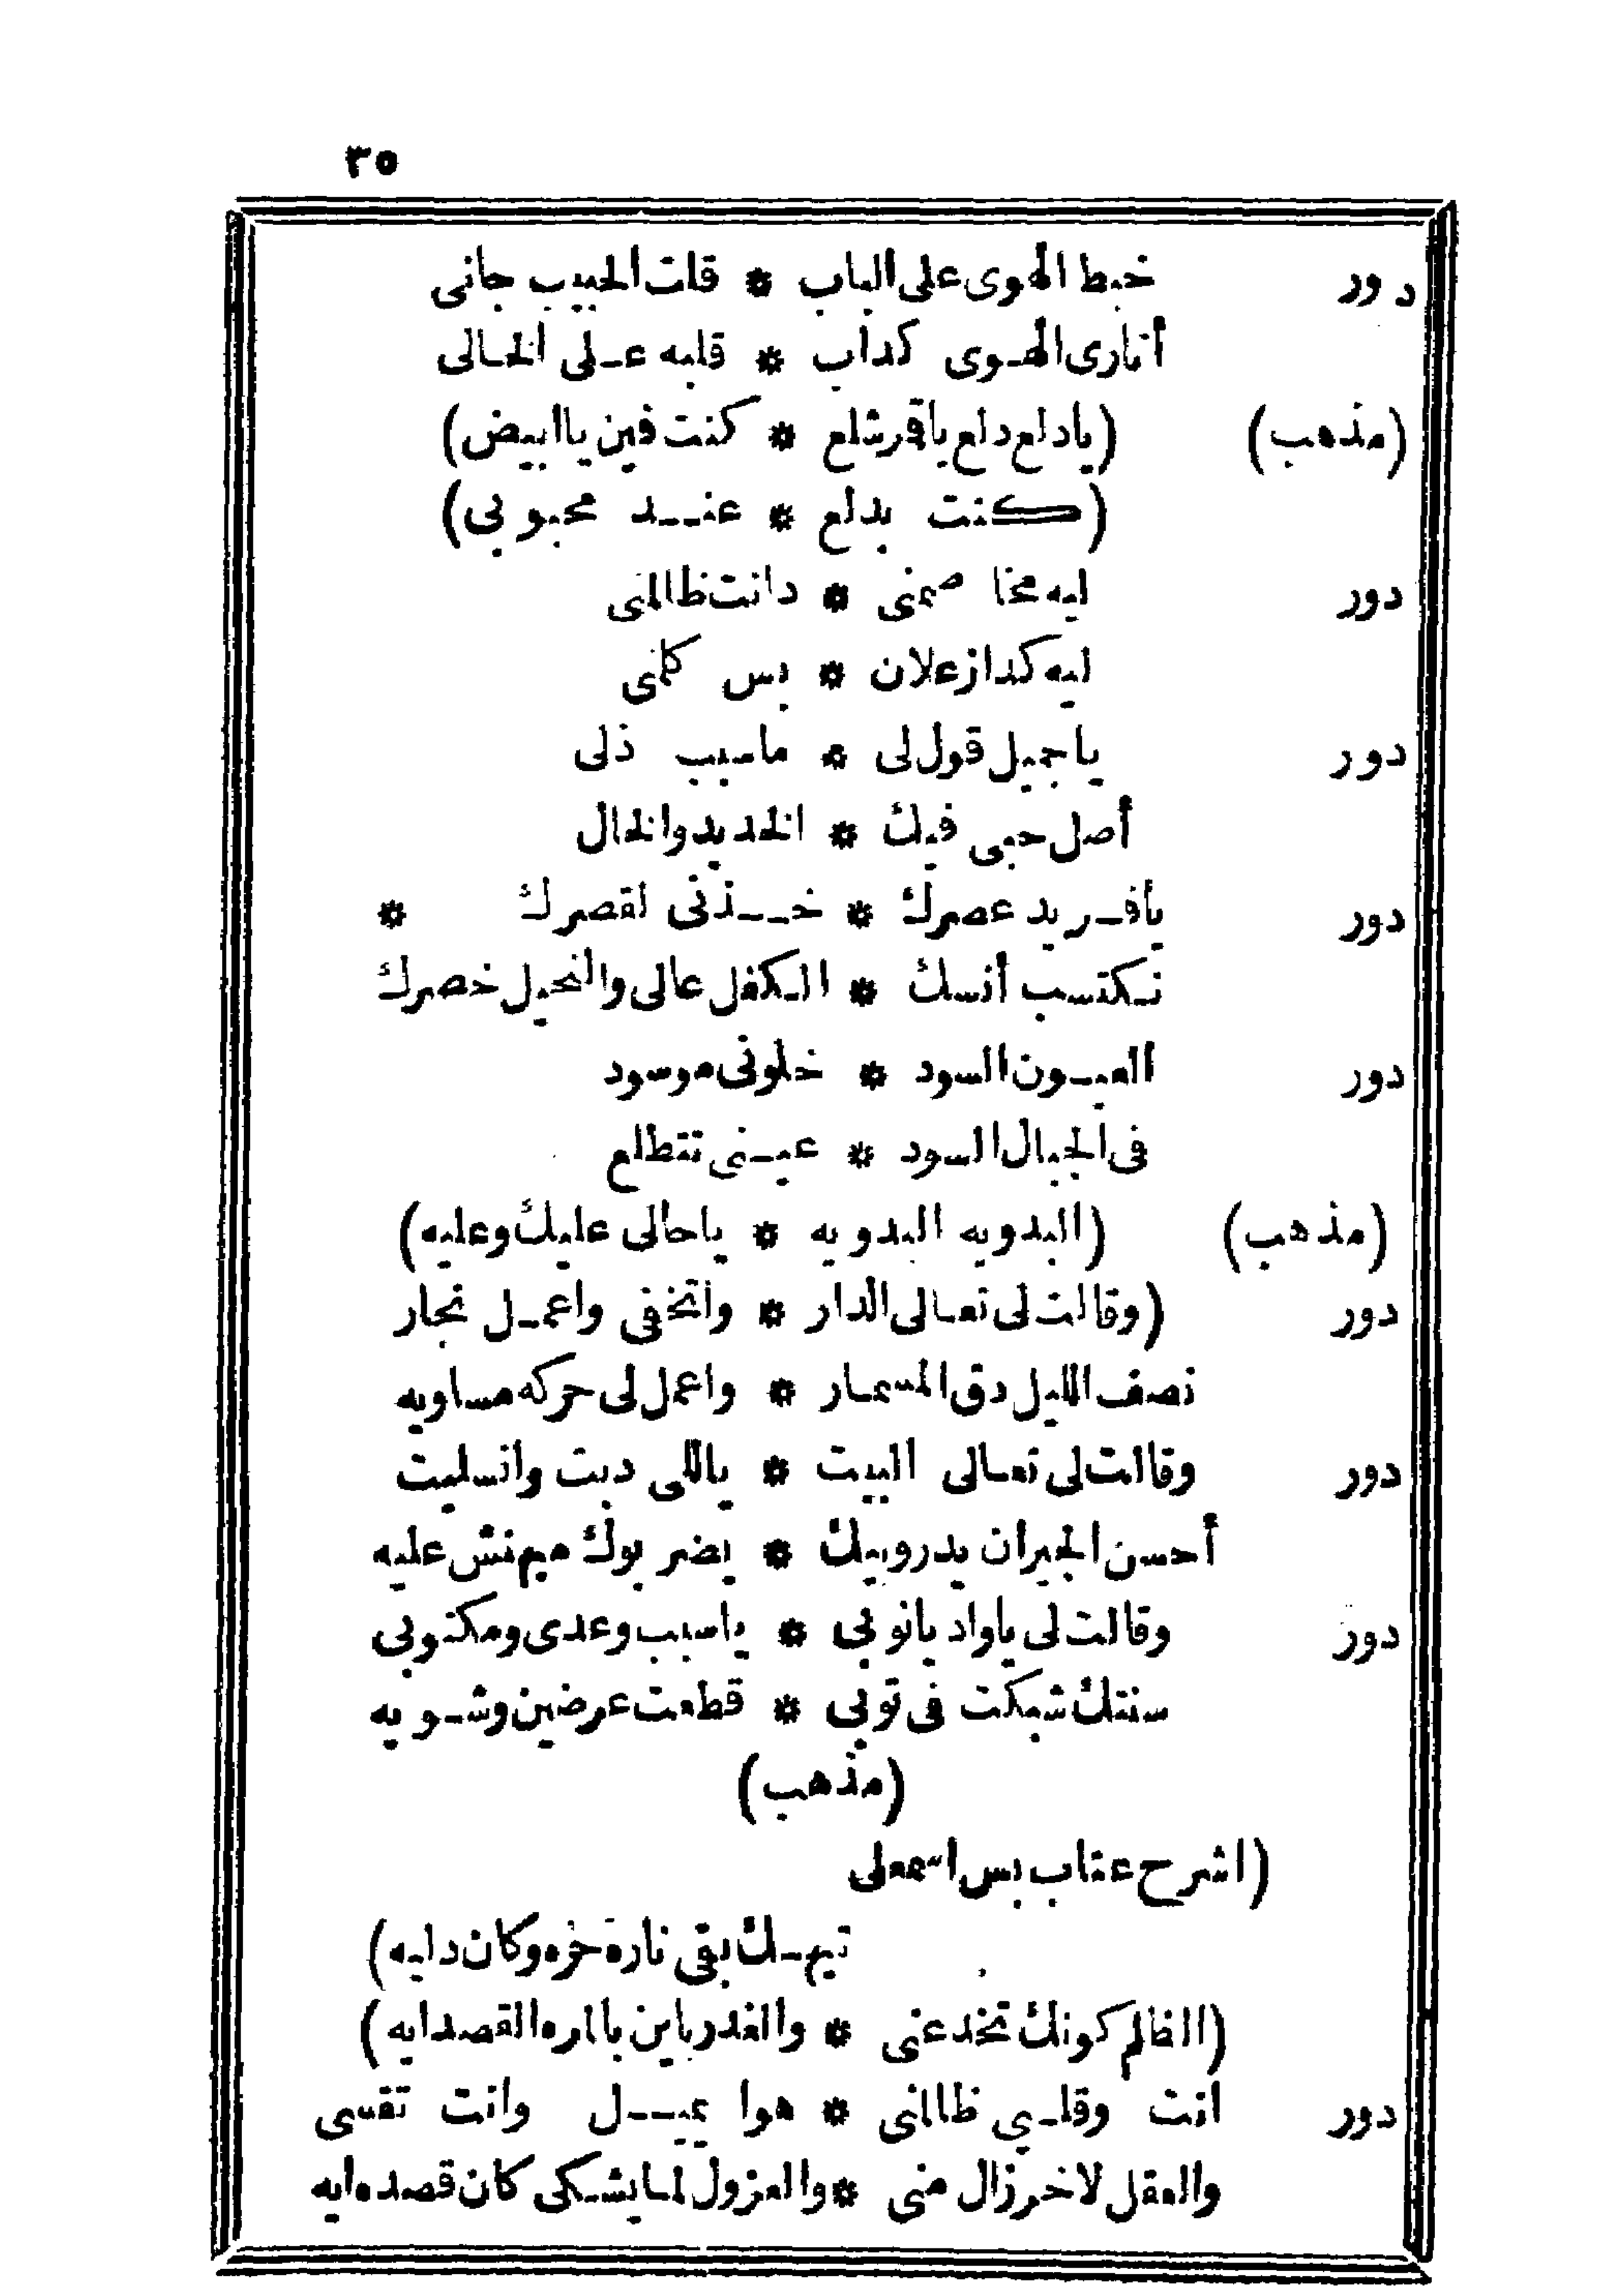 ٣٥
دور خبط الهوى على الباب * قلت الحبيب جانى
أتارى الهوى كداب * قلبه على الخالى
(مذهب) (يادلع دلع ياقرشلع * كنت فين ياابيض)
(كنت بدلع * عند محبوبى)
دور ليه مخاصمنى * دانت ظالمنى
ليه كدا زعلان * بس كلمنى
دور ياجميل قول لى * ماسبب ذلى
أصل حبى فيك * الخديد والخال
دور يافريد عصرك * خذنى لقصرك *
نكتسب أنسك * الكفل عالى والنحيل خصرك
دور العيون السود * خلونى موسود
فى الجبال السود * عينى تتطلع
(مذهب) (البدويه البدويه * ياحالى عليك وعليه)
دور (وقالت لى تعالى الدار * واتخفى واعمل نجار
نصف الليل دق المسمار * واعمل لى حركه مساويه
دور وقالت لى تعالى البيت * ياللى دبت وانسليت
أحسن الجيران يدروبيك * يضربوك ميهنش عليه
دور وقالت لى ياواد يانوبى * ياسبب وعدى ومكتوبى
سنتك شبكت فى توبى * قطعت عرضين وشويه
(مذهب)
(اشرح عتاب بس اسمعلى
تيهك بقى ناره حره وكان دايه)
(الظالم كونك تخدعنى * والغدر باين ياالره القصدايه)
دور انت وقلبي ظالمنى * هوا يميل وانت تقسى
والعقل لاخر زال منى * والعزول لما يشكى كان قصده ايه